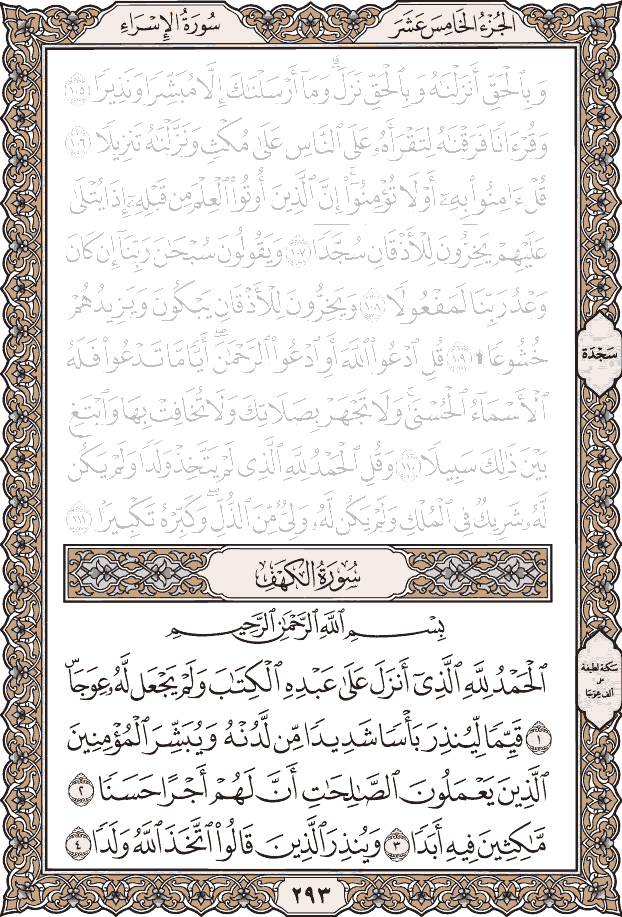 سُورَةُ الإِسْرَاءِ
الجُزْءُ الخَامِسَ عَشَرَ
وَبِٱلْحَقِّ أَنزَلْنَٰهُ وَبِٱلْحَقِّ نَزَلَۗ وَمَآ أَرْسَلْنَٰكَ إِلَّا مُبَشِّرًا وَنَذِيرًا ١٠٥
وَقُرْءَانًا فَرَقْنَٰهُ لِتَقْرَأَهُۥ عَلَى ٱلنَّاسِ عَلَىٰ مُكْثٍ وَنَزَّلْنَٰهُ تَنزِيلًا ١٠٦
قُلْ ءَامِنُوا۟ بِهِۦٓ أَوْ لَا تُؤْمِنُوٓا۟ۚ إِنَّ ٱلَّذِينَ أُوتُوا۟ ٱلْعِلْمَ مِن قَبْلِهِۦٓ إِذَا يُتْلَىٰ
عَلَيْهِمْ يَخِرُّونَ لِلْأَذْقَانِ سُجَّدًا ١٠٧ وَيَقُولُونَ سُبْحَٰنَ رَبِّنَآ إِن كَانَ
وَعْدُ رَبِّنَا لَمَفْعُولًا ١٠٨ وَيَخِرُّونَ لِلْأَذْقَانِ يَبْكُونَ وَيَزِيدُهُمْ
خُشُوعًا ۩ ١٠٩ قُلِ ٱدْعُوا۟ ٱللَّهَ أَوِ ٱدْعُوا۟ ٱلرَّحْمَٰنَۖ أَيًّا مَّا تَدْعُوا۟ فَلَهُ
ٱلْأَسْمَآءُ ٱلْحُسْنَىٰۚ وَلَا تَجْهَرْ بِصَلَاتِكَ وَلَا تُخَافِتْ بِهَا وَٱبْتَغِ
بَيْنَ ذَٰلِكَ سَبِيلًا ١١٠ وَقُلِ ٱلْحَمْدُ لِلَّهِ ٱلَّذِى لَمْ يَتَّخِذْ وَلَدًا وَلَمْ يَكُن
لَّهُۥ شَرِيكٌ فِى ٱلْمُلْكِ وَلَمْ يَكُن لَّهُۥ وَلِىٌّ مِّنَ ٱلذُّلِّۖ وَكَبِّرْهُ تَكْبِيرًۢا ١١١
سَجْدَة
سُورَةُ الكَهْفِ
بِسْمِ ٱللَّهِ ٱلرَّحْمَٰنِ ٱلرَّحِيمِ
ٱلْحَمْدُ لِلَّهِ ٱلَّذِىٓ أَنزَلَ عَلَىٰ عَبْدِهِ ٱلْكِتَٰبَ وَلَمْ يَجْعَل لَّهُۥ عِوَجَاۜ
١ قَيِّمًا لِّيُنذِرَ بَأْسًا شَدِيدًا مِّن لَّدُنْهُ وَيُبَشِّرَ ٱلْمُؤْمِنِينَ
ٱلَّذِينَ يَعْمَلُونَ ٱلصَّٰلِحَٰتِ أَنَّ لَهُمْ أَجْرًا حَسَنًا ٢
مَّٰكِثِينَ فِيهِ أَبَدًا ٣ وَيُنذِرَ ٱلَّذِينَ قَالُوا۟ ٱتَّخَذَ ٱللَّهُ وَلَدًا ٤
سكتة لطيفة
على
ألف عِوَجَا
٢٩٣